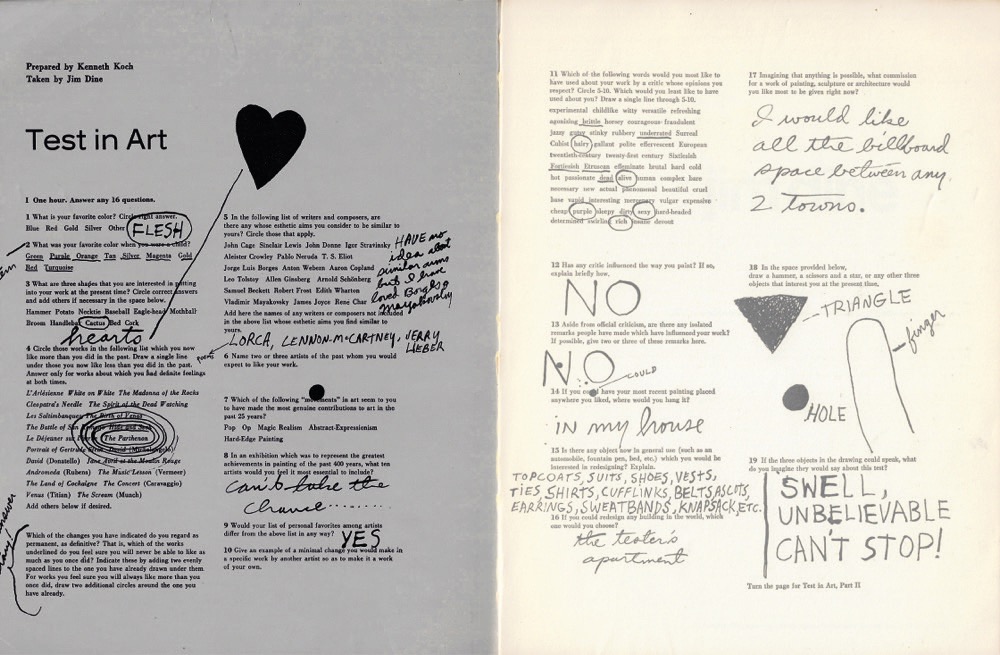 Prepared by Kenneth Koch
Taken by Jim Dine
Test in Art
1 One hour. Answer any 16 questions.
1 What is your favorite color? Circle right answer.
Blue Red Gold Silver Other FLESH
2 What was your favorite color when you were a child?
Green Purple Orange Tan Silver Magenta Gold
Red Turquoise
3 What are three shapes that you are interested in putting
into your work at the present time? Circle correct answers
and add others if necessary in the space below.
Hammer Potato Necktie Baseball Eagle-head Mothball
Broom Handlebar Cactus Bed Cork
hearts
4 Circle those works in the following list which you now
like more than you did in the past. Draw a single line
under those you now like less than you did in the past.
Answer only for works about which you had definite feelings
at both times.
L'Arlésienne White on White The Madonna of the Rocks
Cleopatra's Needle The Spirit of the Dead Watching
Les Saltimbanques The Birth of Venus
The Battle of San
Le Déjeuner sur The Parthenon
Portrait of Gertrude David (Michelangelo)
David (Donatello) Jane Avril at the Moulin Rouge
Andromeda (Rubens) The Music Lesson (Vermeer)
The Land of Cockaigne The Concert (Caravaggio)
Venus (Titian) The Scream (Munch)
Add others below if desired.
Which of the changes you have indicated do you regard as
permanent, as definitive? That is, which of the works
underlined do you feel sure you will never be able to like as
much as you once did? Indicate these by adding two evenly
spaced lines to the one you have already drawn under them.
For works you feel sure you will always like more than you
once did, draw two additional circles around the one you
have already.
5 In the following list of writers and composers, are
there any whose esthetic aims you consider to be similar to
yours? Circle those that apply.
John Cage Sinclair Lewis John Donne Igor Stravinsky
Aleister Crowley Pablo Neruda T. S. Eliot
Jorge Luis Borges Anton Webern Aaron Copland
Leo Tolstoy Allen Ginsberg Arnold Schönberg
Samuel Beckett Robert Frost Edith Wharton
Vladimir Mayakovsky James Joyce René Char
Add here the names of any writers or composers not included
in the above list whose esthetic aims you find similar to
yours.
HAVE no
idea about
similar aims
but I have
loved Borges &
Mayakovsky
poems
LORCA, LENNON-McCARTNEY, JERRY
LIEBER
6 Name two or three artists of the past whom you would
expect to like your work.
7 Which of the following "movements" in art seem to you
to have made the most genuine contributions to art in the
past 25 years?
Pop Op Magic Realism Abstract-Expressionism
Hard-Edge Painting
8 In an exhibition which was to represent the greatest
achievements in painting of the past 400 years, what ten
artists would you feel it most essential to include?
can't take the
chance..........
9 Would your list of personal favorites among artists
differ from the above list in any way? YES
10 Give an example of a minimal change you would make in
a specific work by another artist so as to make it a work
of your own.
11 Which of the following words would you most like to
have used about your work by a critic whose opinions you
respect? Circle 5-10. Which would you least like to have
used about you? Draw a single line through 5-10.
experimental childlike witty versatile refreshing
agonizing brittle horsey courageous fraudulent
jazzy gutsy stinky rubbery underrated Surreal
Cubist hairy gallant polite effervescent European
twentieth-century twenty-first century Sixtieish
Fortieish Etruscan effeminate brutal hard cold
hot passionate dead alive human complex bare
necessary new actual phenomenal beautiful cruel
base vapid interesting mercenary vulgar expensive
cheap purple sleepy dirty sexy hard-headed
determined swirling rich insane decent
12 Has any critic influenced the way you paint? If so,
explain briefly how.
NO
13 Aside from official criticism, are there any isolated
remarks people have made which have influenced your work?
If possible, give two or three of these remarks here.
NO
COULD
14 If you could have your most recent painting placed
anywhere you liked, where would you hang it?
in my house
15 Is there any object now in general use (such as an
automobile, fountain pen, bed, etc.) which you would be
interested in redesigning? Explain.
TOPCOATS, SUITS, SHOES, VESTS,
TIES, SHIRTS, CUFFLINKS, BELTS, ASCOTS,
EARRINGS, SWEATBANDS, KNAPSACK, ETC.
16 If you could redesign any building in the world, which
one would you choose?
the tester's
apartment
17 Imagining that anything is possible, what commission
for a work of painting, sculpture or architecture would
you like most to be given right now?
I would like
all the billboard
space between any
2 towns.
18 In the space provided below,
draw a hammer, a scissors and a star, or any other three
objects that interest you at the present time.
TRIANGLE
finger
HOLE
19 If the three objects in the drawing could speak, what
do you imagine they would say about this test?
SWELL,
UNBELIEVABLE
CAN'T STOP!
Turn the page for Test in Art, Part II